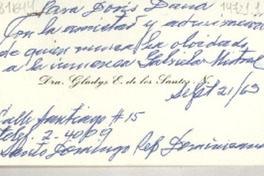 Para Doris Dana
Con la amistad y admiración
de quien nunca ha olvidado
a la inmensa Gabriela Mistral
Dra. Gladys E. de los Santos N.
Sept 21/63
Calle Santiago #15
Telef. 2-4009
Santo Domingo Rep Dominicana